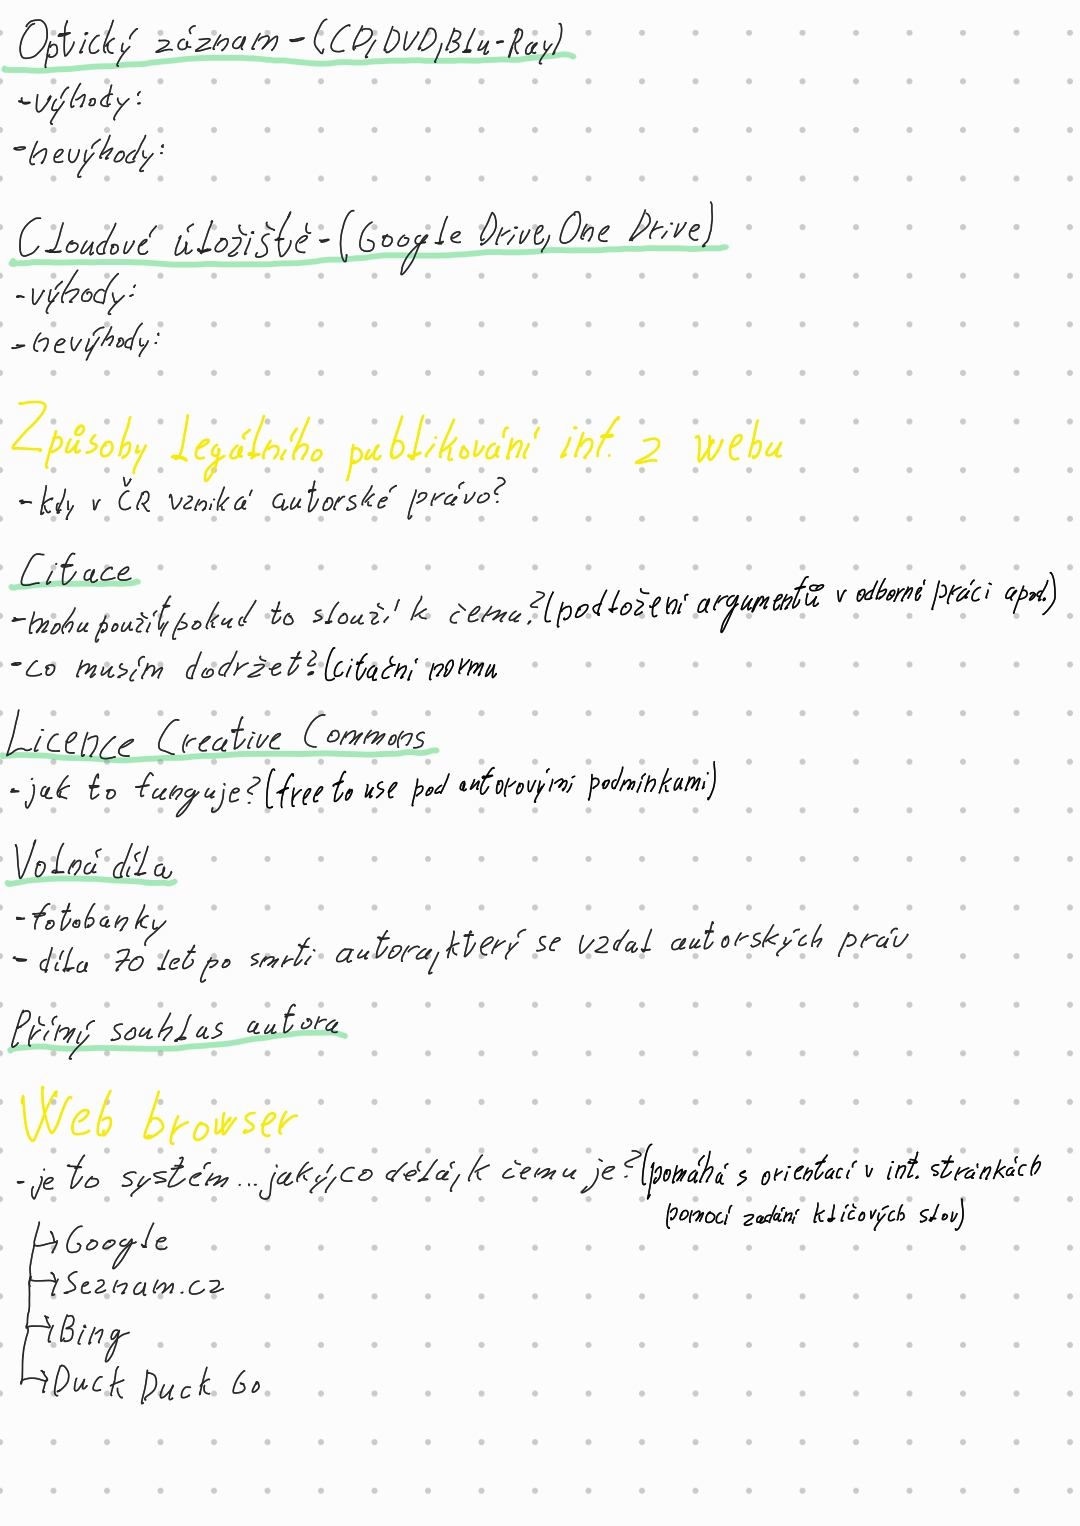 Optický záznam - (CD, DVD, Blu-Ray)
- výhody:
- nevýhody:
Cloudové úložiště - (Google Drive, One Drive)
- výhody:
- nevýhody:
Způsoby legálního publikování inf. z webu
- kdy v ČR vzniká autorské právo?
Citace
- mohu použít, pokud to slouží k čemu? (podložení argumentů v odborné práci apod.)
- co musím dodržet? (citační normu
Licence Creative Commons
- jak to funguje? (free to use pod autorovými podmínkami)
Volná díla
- fotobanky
- díla 70 let po smrti autora, který se vzdal autorských práv
Přímý souhlas autora
Web browser
- je to systém... jaký, co dělá, k čemu je? (pomáhá s orientací v int. stránkách
pomocí zadání klíčových slov)
↳ Google
↳ Seznam.cz
↳ Bing
↳ Duck Duck Go